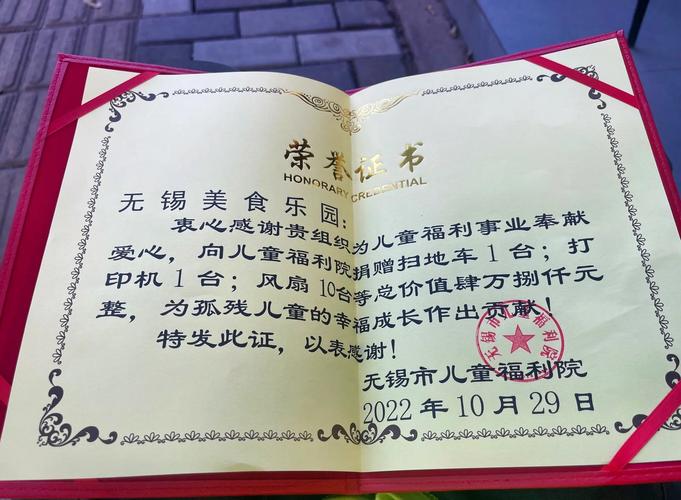 荣誉证书
HONORARY CREDENTIAL
无锡美食乐园：
衷心感谢贵组织为儿童福利事业奉献
爱心，向儿童福利院捐赠扫地车1台；打
印机1台；风扇10台等总价值肆万捌仟元
整，为孤残儿童的幸福成长作出贡献！
特发此证，以表感谢！
无锡市儿童福利院
无锡市儿童福利院
2022年10月29日